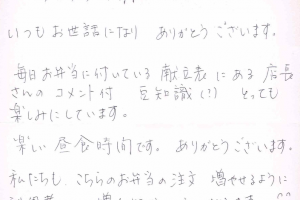 いつもお世話になり ありがとうございます。
毎日お弁当に付いている献立表にある店長
さんの コメント付 豆知識(!) とっても
楽しみにしています。
楽しい昼食時間です。 ありがとうございます。
私たちも、こちらのお弁当の注文 増やせるように